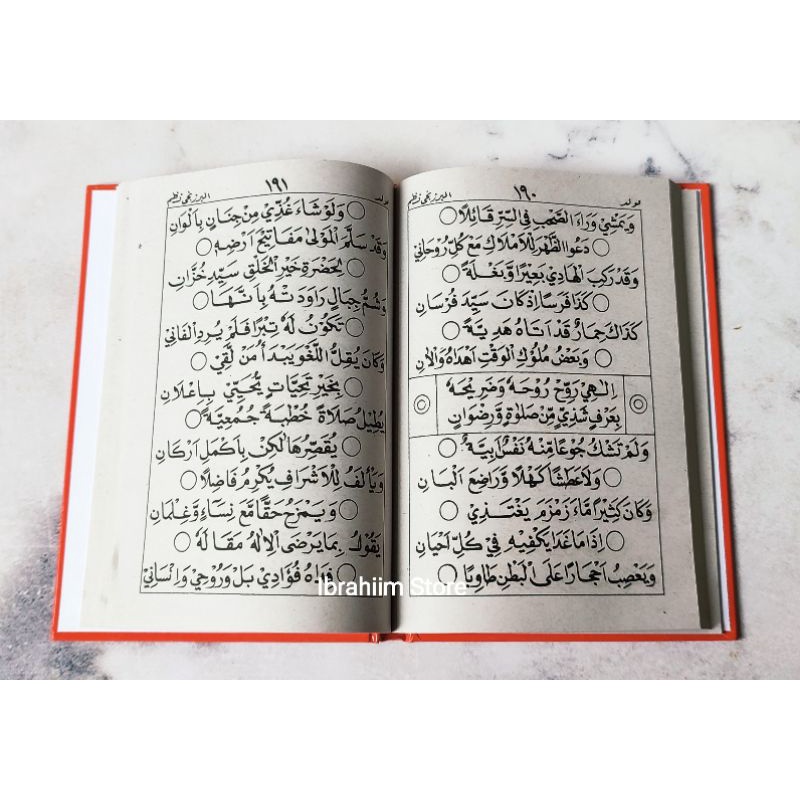 مولد ١٩٠ البرزنجي نظم
وَيَمْشِيْ وَرَاءَ الصَّحْبِ فِى السَّيْرِ قَائِلًا ○
○ دَعُوا الظَّهْرَ لِلْاَمْلَاكِ مَعْ كُلِّ رُوْحَانِيْ
وَقَدْ رَكِبَ الْهَادِيْ بَعِيْرًا وَّبَغْلَةً ○
○ كَذَا فَرَسًا اِذْ كَانَ سَيِّدَ فُرْسَانِ
كَذَاكَ حِمَارٌ قَدْ اَتَاهُ هَدِيَّةً ○
○ وَبَعْضُ مُلُوْكِ الْوَقْتِ اَهْدَاهُ وَالْاٰنِ
اِلٰهِيْ رَوِّحْ رُوْحَهُ وَضَرِيْحَهُ
بِعَرْفٍ شَذِيٍّ مِّنْ صَلٰوةٍ وَّرِضْوَانِ
وَلَمْ تَشْكُ جُوْعًا مِنْهُ نَفْسٌ اَبِيَّةٌ ○
○ وَلَا عَطَشًا كَهْلًا وَّرَاضِعَ اَلْبَانِ
وَكَانَ كَثِيْرًا مَّاءَ زَمْزَمَ يَغْتَذِيْ ○
○ اِذَا مَا غَدَا يَكْفِيْهِ فِيْ كُلِّ اَحْيَانِ
وَيَعْصِبُ اَحْجَارًا عَلَى الْبَطْنِ طَاوِيًا ○
مولد ١٩١ البرزنجي نظم
○ وَلَوْ شَاءَ غُذِّيْ مِنْ جِنَانٍ بِاَلْوَانِ
وَقَدْ سَلَّمَ الْمَوْلٰى مَفَاتِيْحَ اَرْضِهِ ○
○ لِحَضْرَةِ خَيْرِ الْخَلْقِ سَيِّدِ خُزَّانِ
وَشُمُّ جِبَالٍ رَاوَدَتْهُ بِاَنَّهَا ○
○ تَكُوْنُ لَهُ تِبْرًا فَلَمْ يُرِدِ الْفَانِيْ
وَكَانَ يُقِلُّ اللَّغْوَ يَبْدَأُ مَنْ لَقِيْ ○
○ بِخَيْرِ تَحِيَّاتٍ يُّحَيِّيْ بِاِعْلَانِ
يُطِيْلُ صَلَاةً خُطْبَةً جُمُعِيَّةً ○
○ يُقَصِّرُهَا لٰكِنْ بِاَكْمَلِ اَرْكَانِ
وَيَأْلَفُ لِلْاَشْرَافِ يُكْرِمُ فَاضِلًا ○
○ وَيَمْزَحُ حَقًّا مَّعَ نِسَاءٍ وَّغِلْمَانِ
يَقُوْلُ بِمَا يَرْضَى الْاِلٰهُ مَقَالَهُ ○
○ فَدَاهُ فُؤَادِيْ بَلْ وَرُوْحِيْ وَاِنْسَانِيْ
Ibrahiim Store